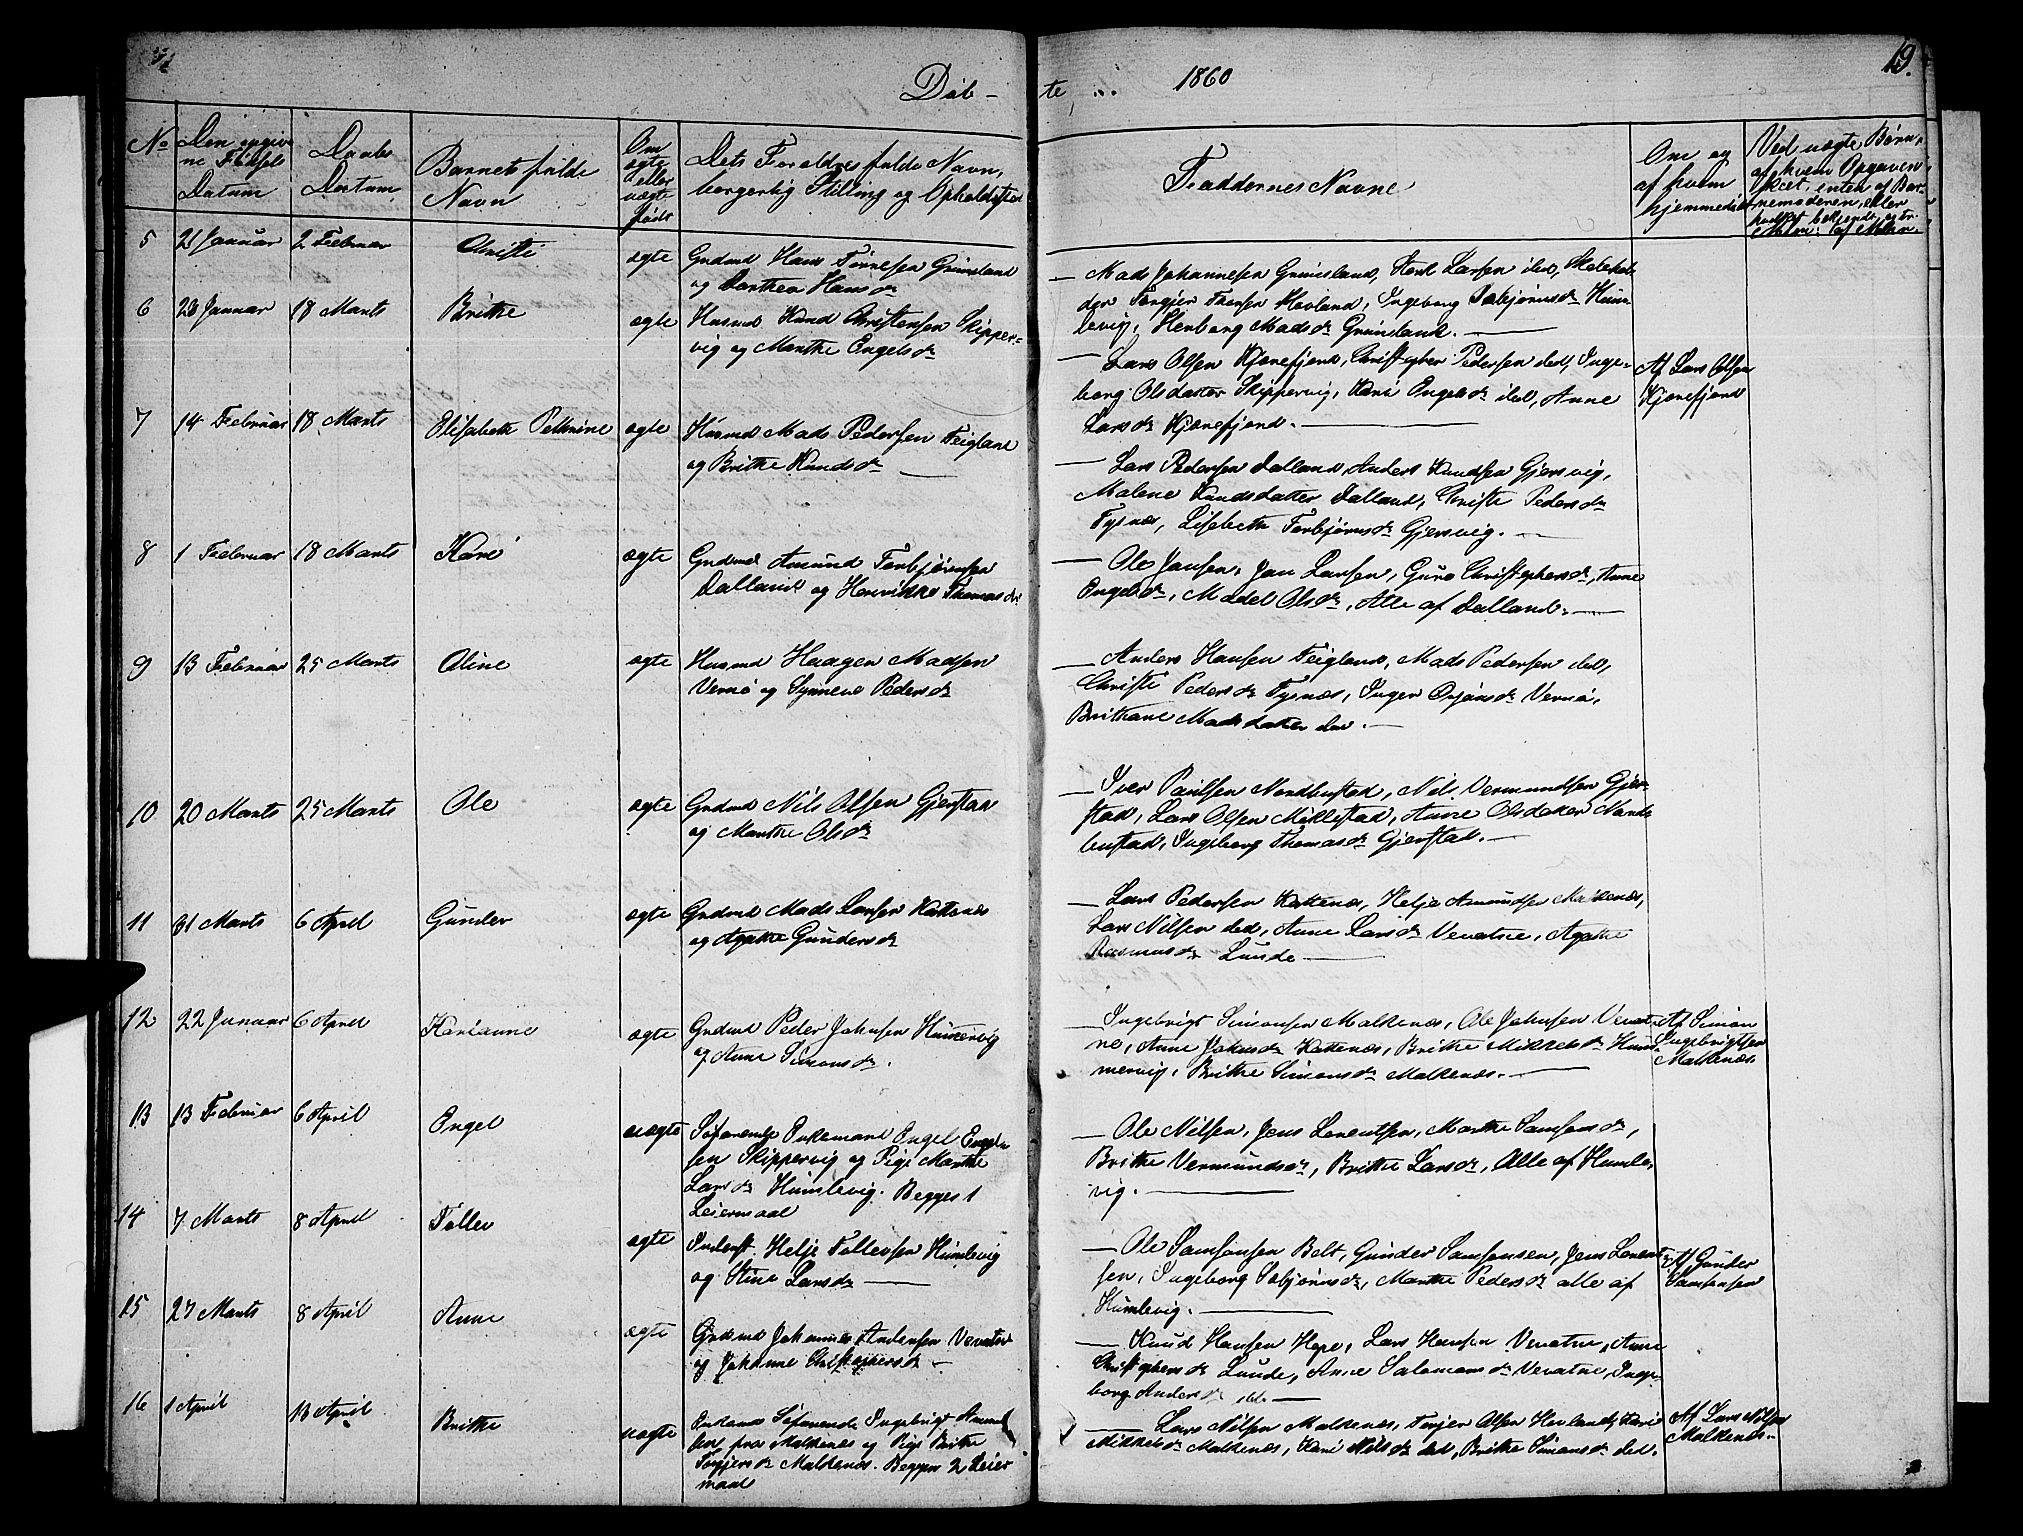 19.
Døb - te 1860
No
Den opgiv
ne Fødsels
Datum
Daabs
Datum
Barnets fulde
Navn
Om
ægte
eller
uægte
født
Dets Forældres fulde Navn,
borgerlig Stilling og Opholdsted
Faddernes Navne
Om og
af hvem
hjemmedøbt
Ved uægte Børn,
af hvem Opgaven
skeet, enten af Bar-
nemoderen, eller
5 21 Januar 2 Februar Christi ægte Grdmd Hans Tørresen Grimsland
og Dorthea Hansdr
Mads Johannesen Grimsland, Larsen ibd, Skolehol-
der Torgier Thorsen Hovland, Ingeborg Humm-
levig, Herborg Madsdr Grimsland.
6 23 Januar 18 Marts Brithe ægte Husmd Knud Christensen Skipper-
vig og Marthe Engelsdr
Lars Olsen Kjærefjord, Christopher Pedersen ibd, Inge-
borg Olsdatter Skippervig, Kari Engelsdr ibd, Anne
Larsdr Kjærefjord.
Af Lars Olsen
Kjærefjord
7 14 Februar 18 Marts Elisabeth Petterine ægte Husmd Mads Pedersen Teigland
og Brithe Knudsdr
Lars Pedersen Dalland, Anders Knudsen Gjersvig,
Malene Knudsdatter Dalland, Christi Pedersdr
Tysnæs, Lisebeth Torbjørnsdr Gjersvig.
8 1 Februar 18 Marts Kari ægte Grdmd Amund Torbjørnsen
Dalland og Henrikke Thomasdr
Ole Jansen, Jan Larsen, Guro Christophersdr, Anne
Engelsdr, Madel Olsdr, Alle af Dalland.
9 13 Februar 25 Marts Oline ægte Husmd Haagen Madsen
Vernø og Synneve Pedersdr
Anders Hansen Teigland, Mads Pedersen ibd,
Christi Pedersdr Tysnæs, Inger Ørjansdr Vernø,
Brithane Madsdatter ibd.
10 20 Marts 25 Marts Ole ægte Grdmd Nils Olsen Gjerstad
og Marthe Olsdr
Iver Paulsen Nordbustad, Nils Vermundsen Gjer-
stad, Lars Olsen Miklestad, Anne Olsdatter Nord-
bustad, Ingeborg Thomasdr Gjerstad.
11 31 Marts 6 April Gunder ægte Grdmd Mads Larsen Kattenæs
og Agathe Gundersdr
Lars Pedersen Kattenæs, Helje Amundsen Malkenæs,
Lars Nilsen ibd, Anne Larsdr Veratne, Agathe
Rasmusdr Lunde
12 22 Januar 6 April Karianne ægte Grdmd Peder Johnsen Humervig
og Anne Simonsdr.
Ingebrigt Simonsen Malkenæs, Ole Johnsen Verat-
ne, Anne Johnsdr Kattenæs, Brithe Mikkelsdr Hum-
mervig, Brithe Simonsdr Malkenæs.
Af Simon
Ingebrigtsen
Malkenæs
13 13 Februar 6 April Engel uægte Søfarende Enkemand Engel Engel-
sen Skippervig og Pige Marthe
Larsdr Humlevig. Begges 1
Leiermaal
Ole Nilsen, Jens Larentsen, Marthe Samsonsdr,
Brithe Vermundsdr, Brithe Larsdr, Alle af Humle-
vig.
14 7 Marts 8 April Tollev ægte Inderst. Helje Tollevsen Humlevig
og Stine Larsdr
Ole Samsonsen Belt, Gunder Samsonsen, Jens Larent-
sen, Ingeborg Sæbjørnsdr, Marthe Pedersdr alle af
Humlevig.
Af Gunder
Samsonsen
15 27 Marts 8 April Anne ægte Grdmd Johannes Andersen Veratne
og Johanne Christophersdr
Knud Hansen Hope, Lars Hansen Veratne, Anne
Christophersdr Lunde, Anne Salamonsdr Veratne, Inge-
borg Andersdr ibd.
16 1 April 13 April Brithe uægte Enkemd Søfarende Ingebrigt Amund-
sen fra Malkenæs og Pige Brithe
Torgiersdr Malkenæs. Begges 2 Leier
maal
Lars Nilsen Malkenæs, Torjer Olsen Hovland, Kari
Mikkelsdr Malkenæs, Kari Nilsdr ibd, Brithe Simonsdr ibd.
Af Lars Nilsen
Malkenæs.